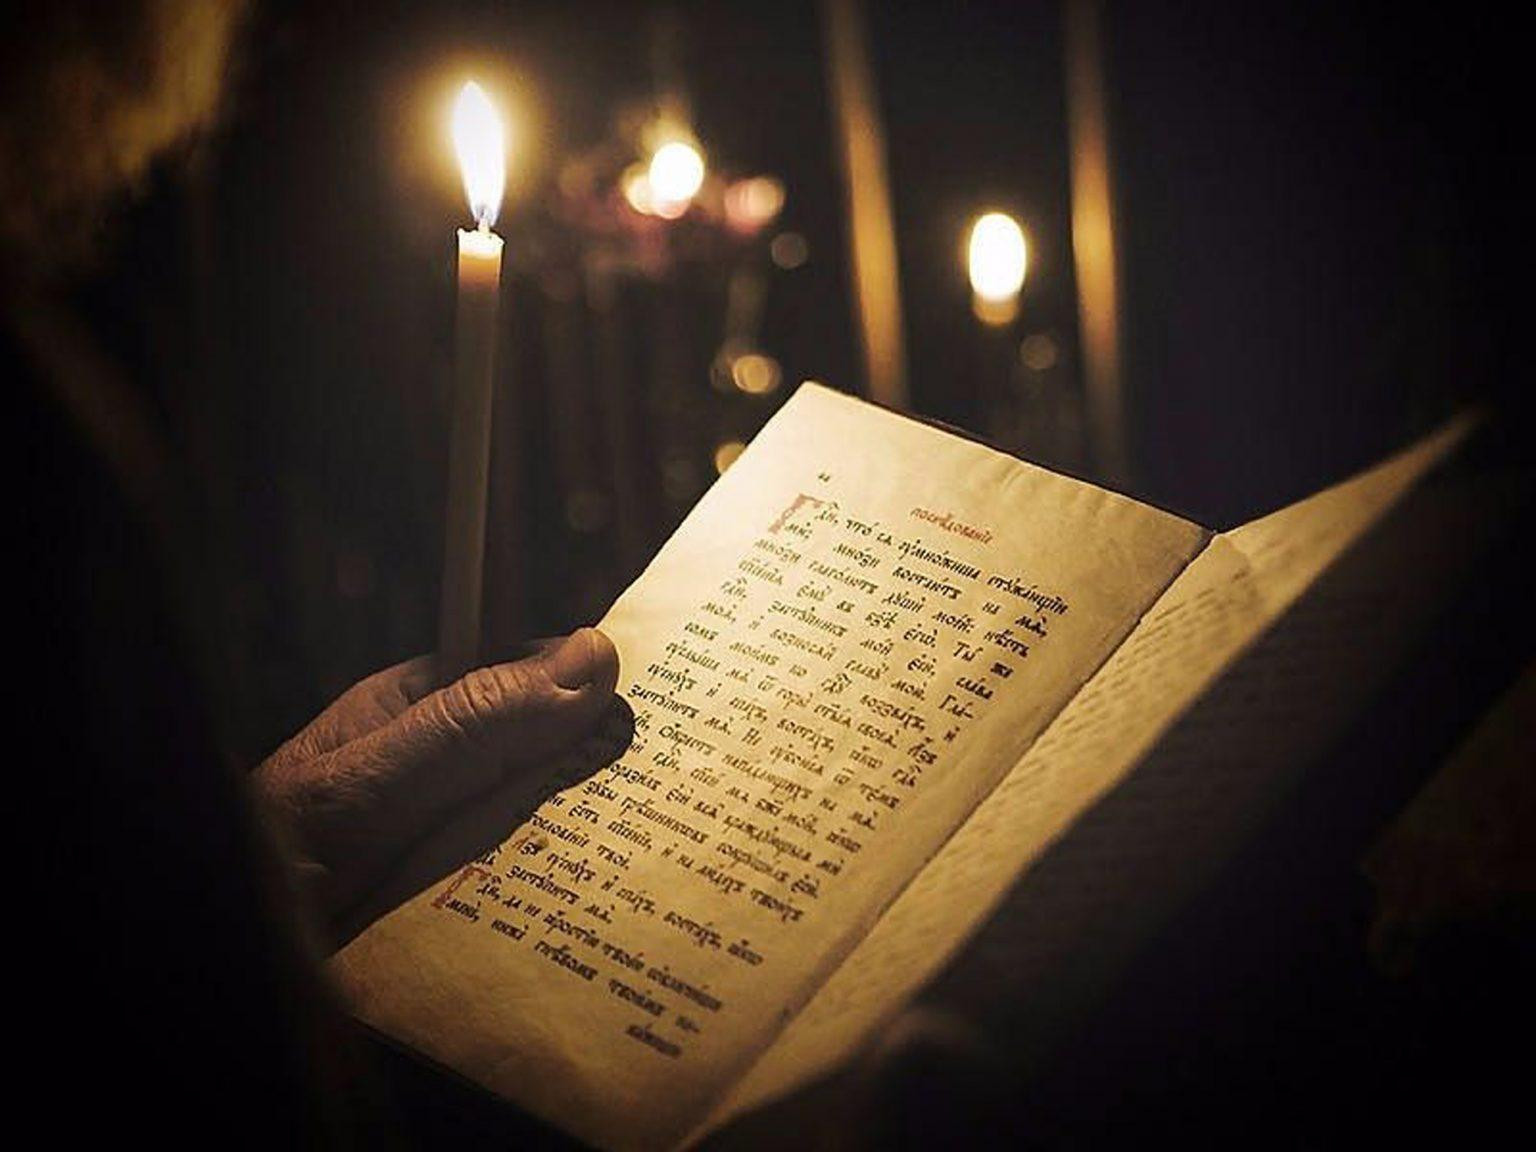 послѣдованїе
Гдⷭ҇и, что́ сѧ ᲂу҆мно́жиша стꙋжа́ющїи
мѝ; мно́зи востаю́тъ на мѧ̀,
мно́зи глаго́лютъ дꙋшѝ мое́й: нѣ́сть
спⷭ҇нїѧ є҆мꙋ̀ въ бз҃ѣ є҆гѡ̀. Ты́ же
гдⷭ҇и, застꙋ́пникъ мо́й є҆сѝ, сла́ва
моѧ̀, и҆ возносѧ́й главꙋ̀ мою̀. Гла́-
сомъ мои́мъ ко гдⷭ҇ꙋ воззва́хъ, и҆
ᲂу҆слы́ша мѧ̀ ѿ горы̀ ст҃ы́ѧ своеѧ̀. А҆́зъ
ᲂу҆снꙋ́хъ и҆ спа́хъ, воста́хъ, ꙗ҆́кѡ гдⷭ҇ь
застꙋ́питъ мѧ̀. Не ᲂу҆бою́сѧ ѿ те́мъ
ѡ҆́крестъ напа́дающихъ на мѧ̀.
гдⷭ҇и, спⷭ҇и́ мѧ бж҃е мо́й, ꙗ҆́кѡ
є҆сѝ всѧ̑ враждꙋ́ющыѧ мѝ
зꙋ́бы грѣ́шникѡвъ сокрꙋши́лъ є҆сѝ.
є҆́сть спⷭ҇нїе, и҆ на лю́дехъ твои́хъ
твоѐ.
А҆́зъ ᲂу҆снꙋ́хъ и҆ спа́хъ, воста́хъ, ꙗ҆́кѡ
застꙋ́питъ мѧ̀.
Гдⷭ҇и, да не ꙗ҆́ростїю твое́ю ѡ҆бличи́ши
менѐ, нижѐ гнѣ́вомъ твои́мъ